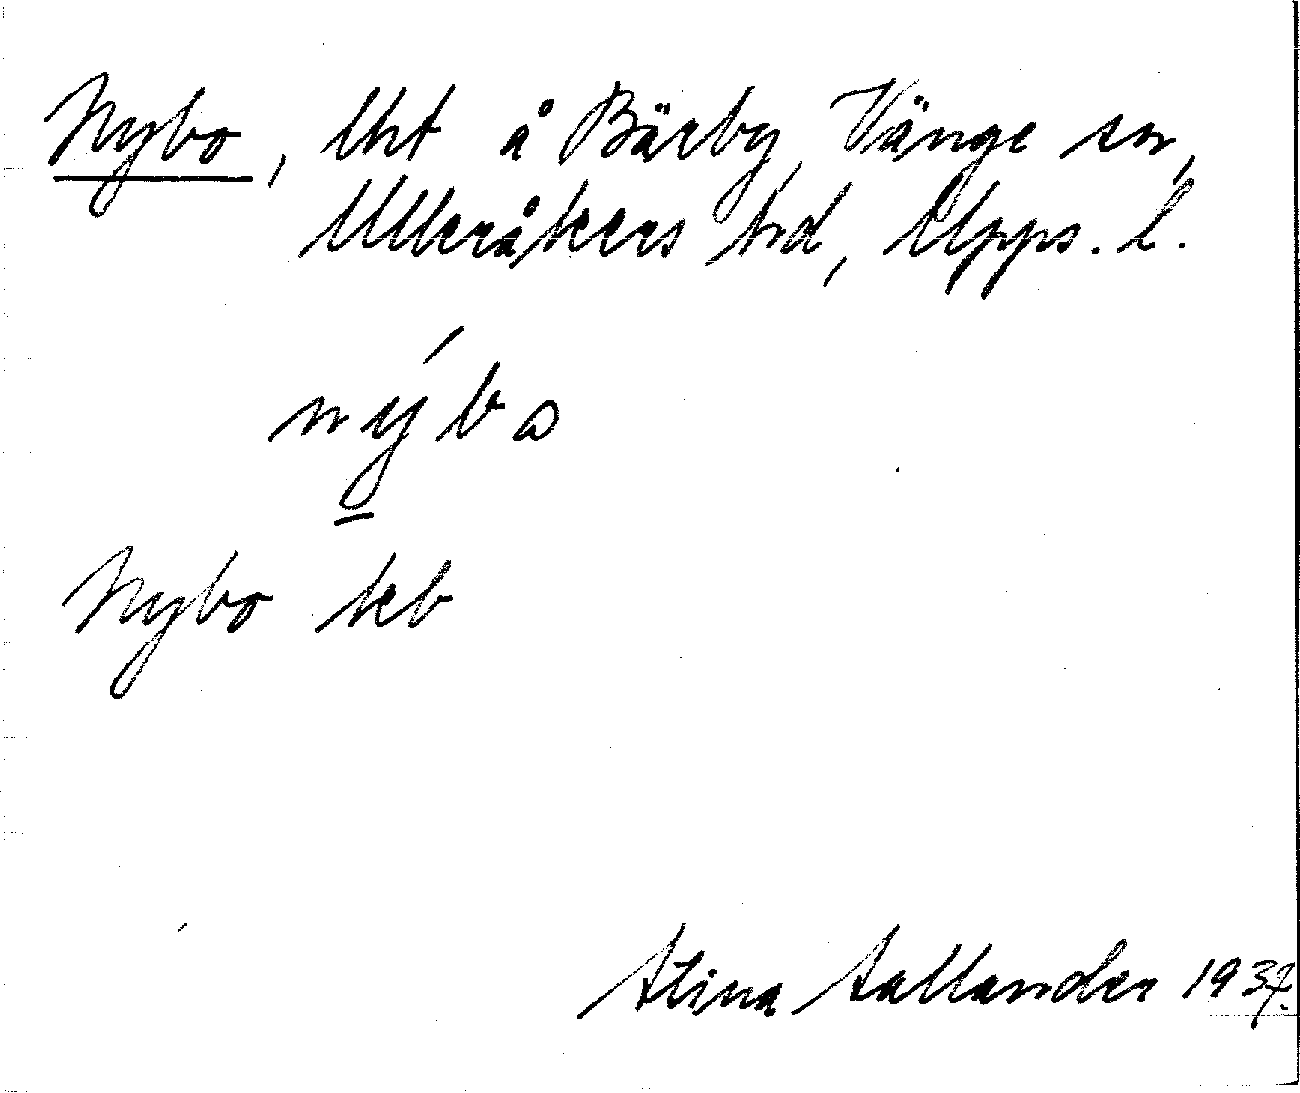 Nybo, lht å Bärby, Vänge sn,
Ulleråkers hd, Upps. l.
nýbo
Nybo kb
Stina Sallander 1937.